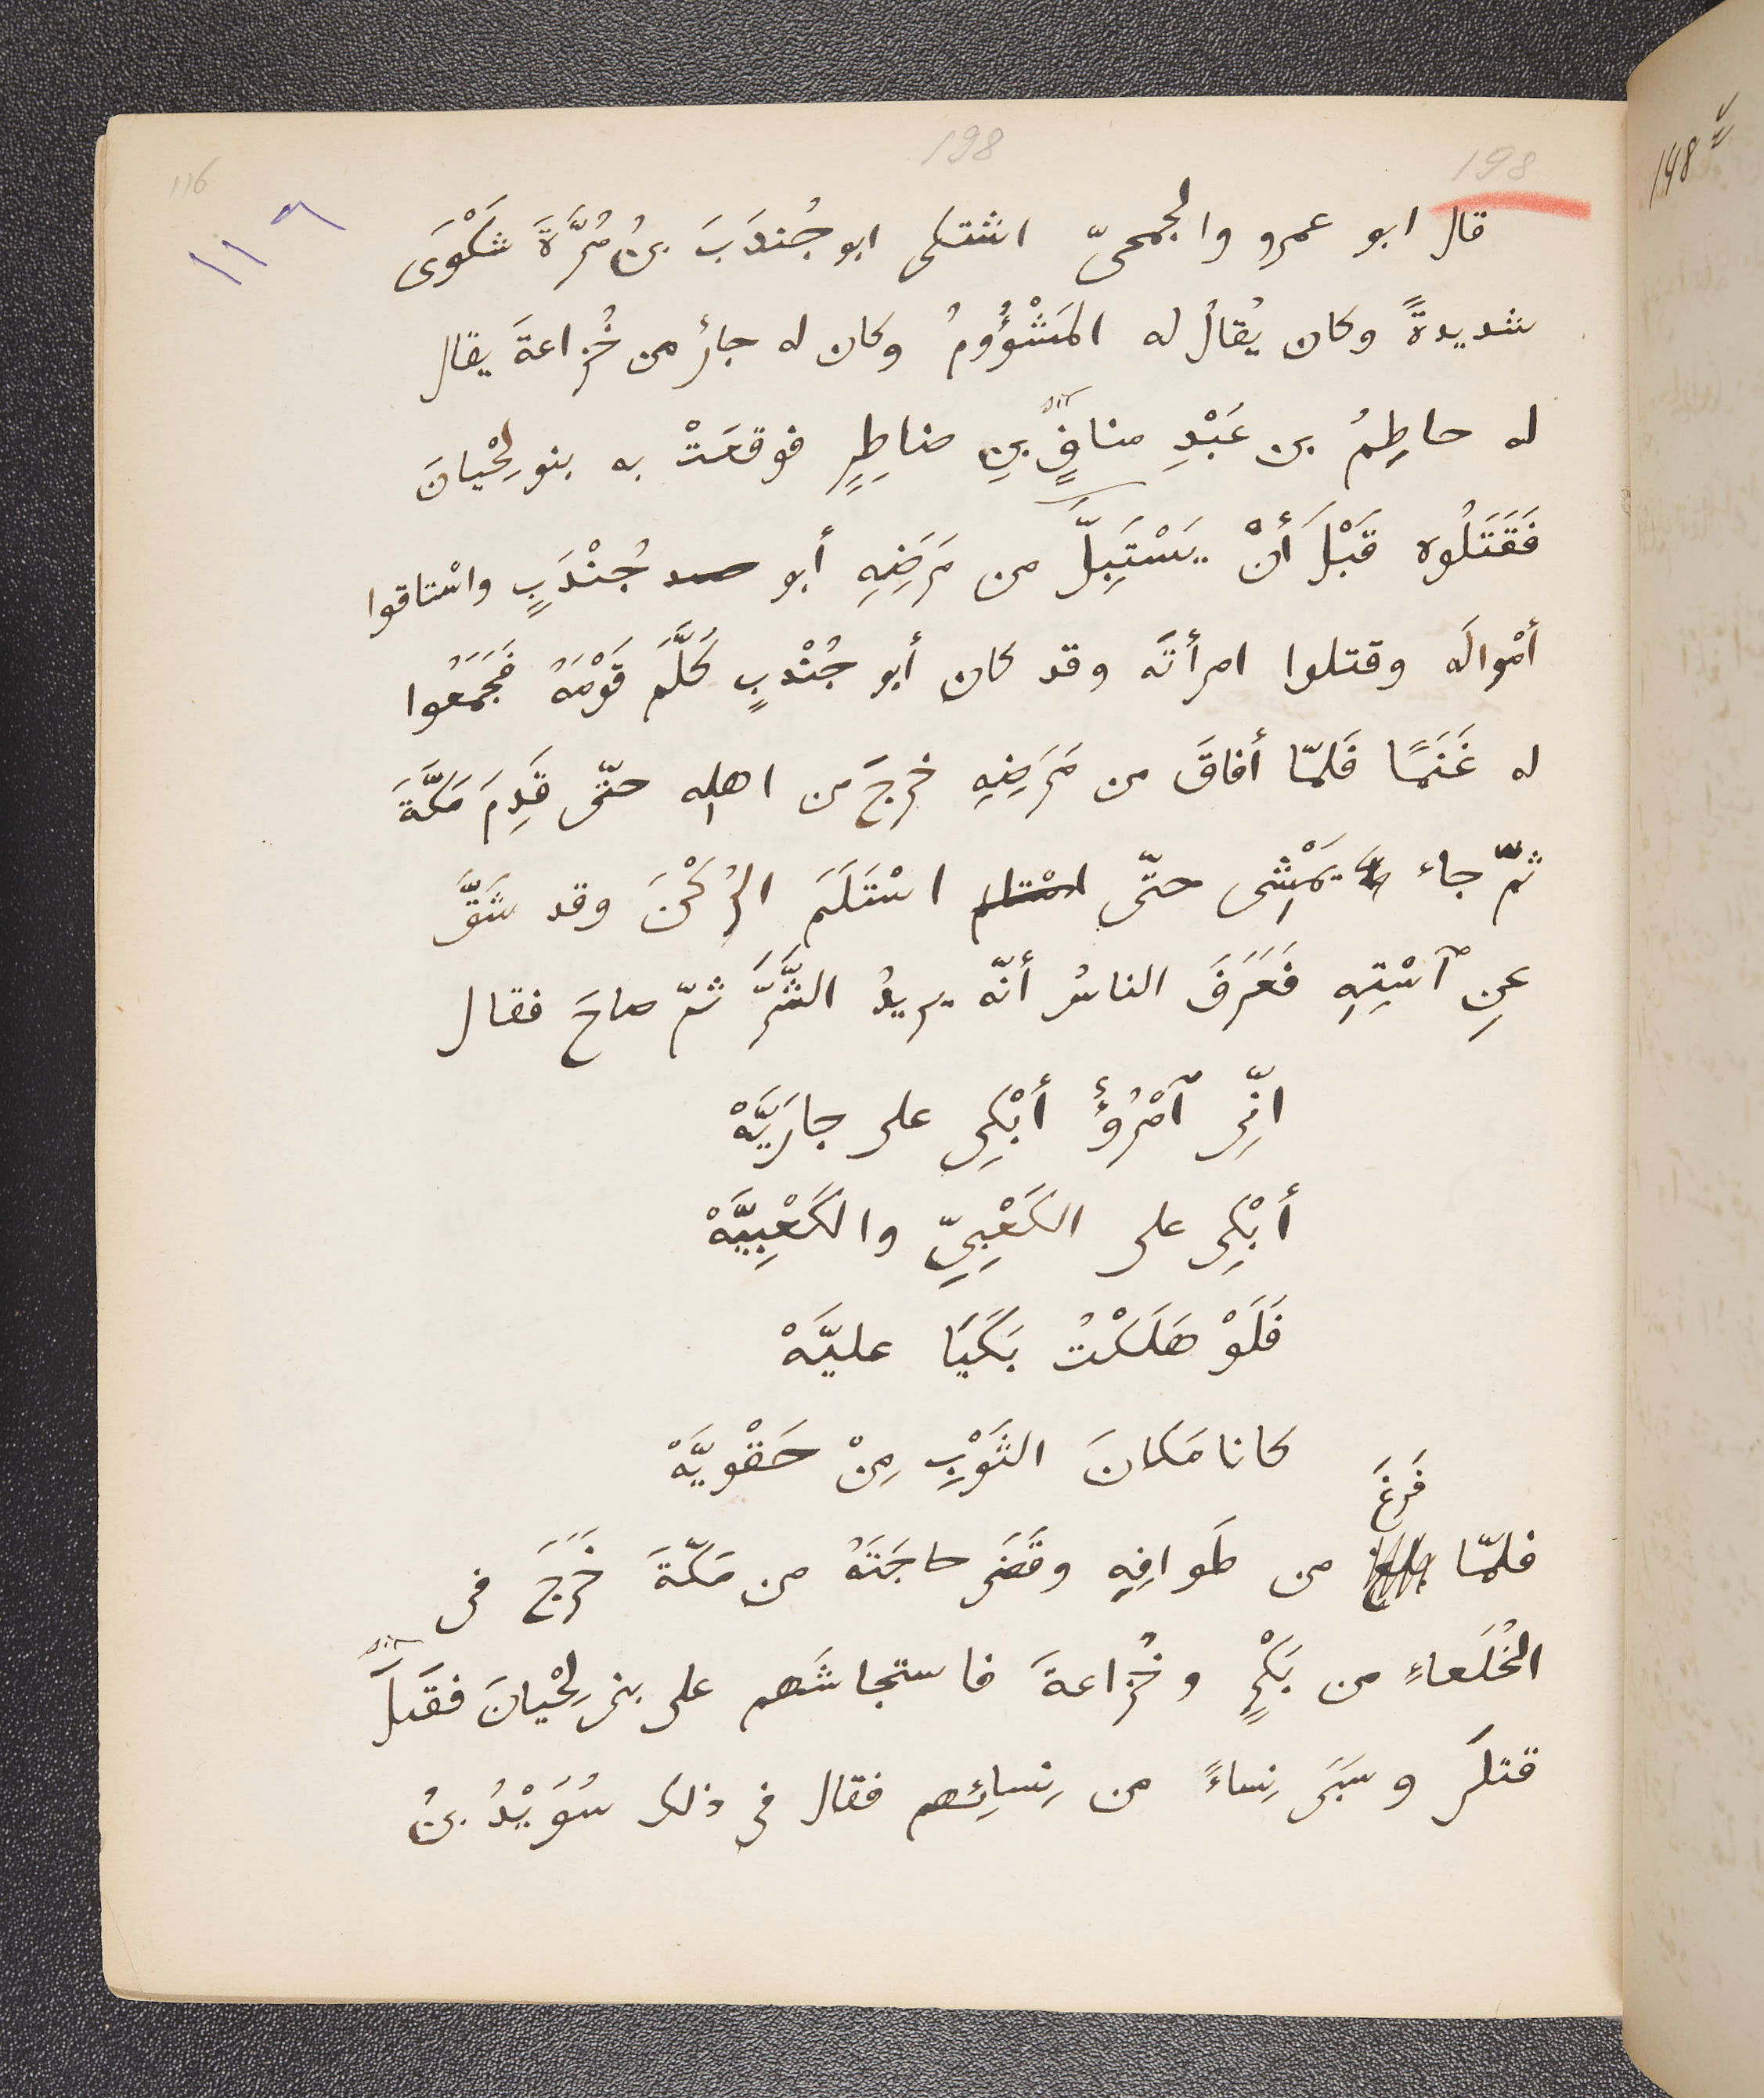 198 198 116
١١٦
قال ابو عمرو والجمحىّ اشتكى ابو جُندَبَ بنُ مُرَّةَ شَكْوَى
شديدةً وكان يُقالُ له المَشْؤُومُ وكان له جارٌ من خُزاعةَ يقال
له حاطِمُ بن عَبْدِ منافٍ بنِ مناطِرٍ فوقعَتْ به بنو لِحْيانَ
فَقَتَلُوه قَبْلَ أنْ يَسْتَبِلَّ من مَرَضِهِ أبو جُنْدَبٍ واسْتاقوا
أمْوالَه وقتلوا امرأتَه وقد كان أبو جُنْدبٍ كَلَّمَ قَوْمَهُ فَجَمَعُوا
له غَنَمًا فَلَمّا أفاقَ من مَرَضِهِ خرجَ من اهلِه حتّى قَدِمَ مَكَّةَ
ثمّ جاء يَمْشِى حتّى اسْتَلَمَ الرُكْنَ وقد شَقَّ
عنِ ٱسْتِهِ فَعَرَفَ الناسُ أنّه يريدُ الشَّرَّ ثمّ صاحَ فقال
انِّى ٱمْرُؤٌ أبْكِى على جارَيَّهْ
أبْكِى على الكَعْبِىِّ والكَعْبِيَّهْ
فَلَوْ هَلَكْتُ بَكَيَا عليَّهْ
كانا مَكانَ الثَوْبِ مِنْ حَقْوَيَّهْ
فَرَغَ
فلمّا من طَوافِهِ وقَضَى حاجَتَهُ من مَكّةَ خَرَجَ فى
الخُلَعاءِ من بَكْرٍ وخُزاعةَ فاستجاشَهم على بنى لِحْيانَ فقَتَلَ
قتلَى وسَبَى نِساءً من نِسائِهم فقال فى ذلك سُوَيْدُ بنُ